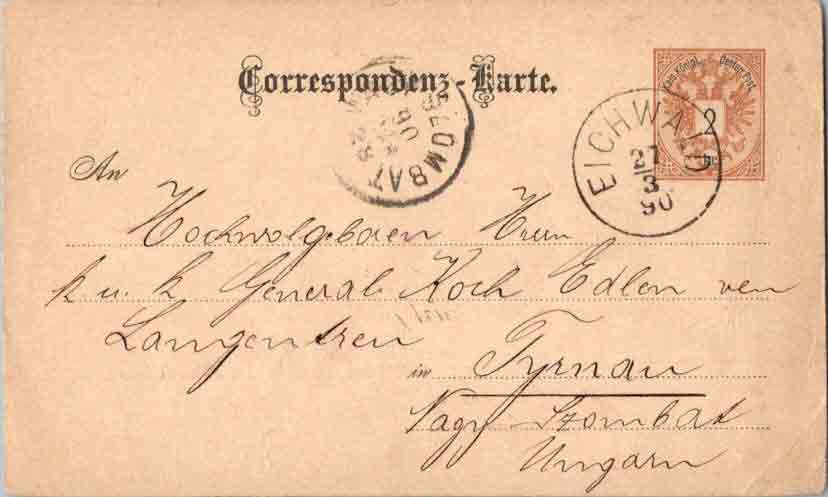 Correspondenz-Karte.
Kais. Königl. Oesterr. Post.
2
EICHWALD
27
3
90
SZOMBAT
90
An
Hochwolgeboren Herrn
k u. k General Koch Edlen von
Langentreu
in Tyrnau
Nagy Szombat
Ungarn